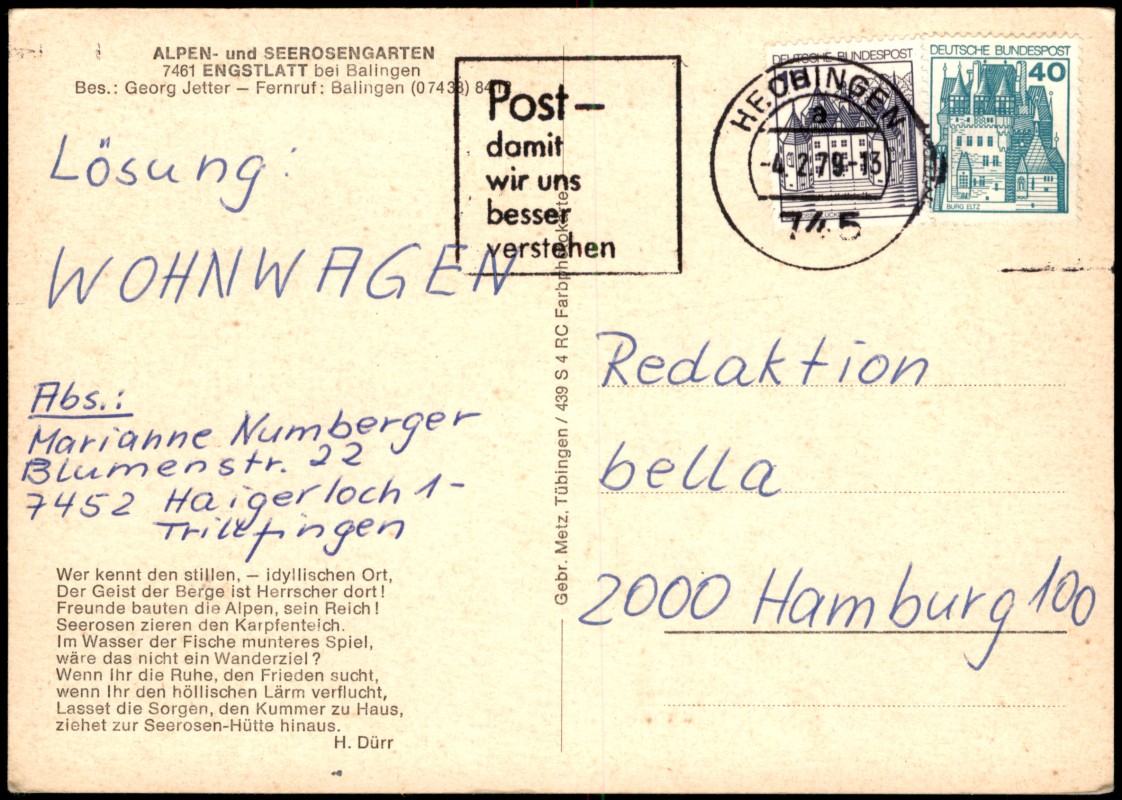 ALPEN- und SEEROSENGARTEN
7461 ENGSTLATT bei Balingen
Bes.: Georg Jetter – Fernruf: Balingen (07433)
Post–
damit
wir uns
besser
verstehen
HECHINGEN
a
-4.2.79-13
745
DEUTSCHE BUNDESPOST
DEUTSCHE BUNDESPOST
40
BURG ELTZ
Lösung:
WOHNWAGEN
Abs.:
Marianne Numberger
Blumenstr. 22
7452 Haigerloch 1-
Trillfingen
Redaktion
bella
2000 Hamburg 100
Gebr. Metz, Tübingen / 439 S 4 RC Farbphotokarte
Wer kennt den stillen, – idyllischen Ort,
Der Geist der Berge ist Herrscher dort!
Freunde bauten die Alpen, sein Reich!
Seerosen zieren den Karpfenteich.
Im Wasser der Fische munteres Spiel,
wäre das nicht ein Wanderziel?
Wenn Ihr die Ruhe, den Frieden sucht,
wenn Ihr den höllischen Lärm verflucht,
Lasset die Sorgen, den Kummer zu Haus,
ziehet zur Seerosen-Hütte hinaus.
H. Dürr